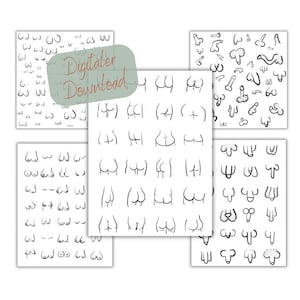 Digitaler
Download